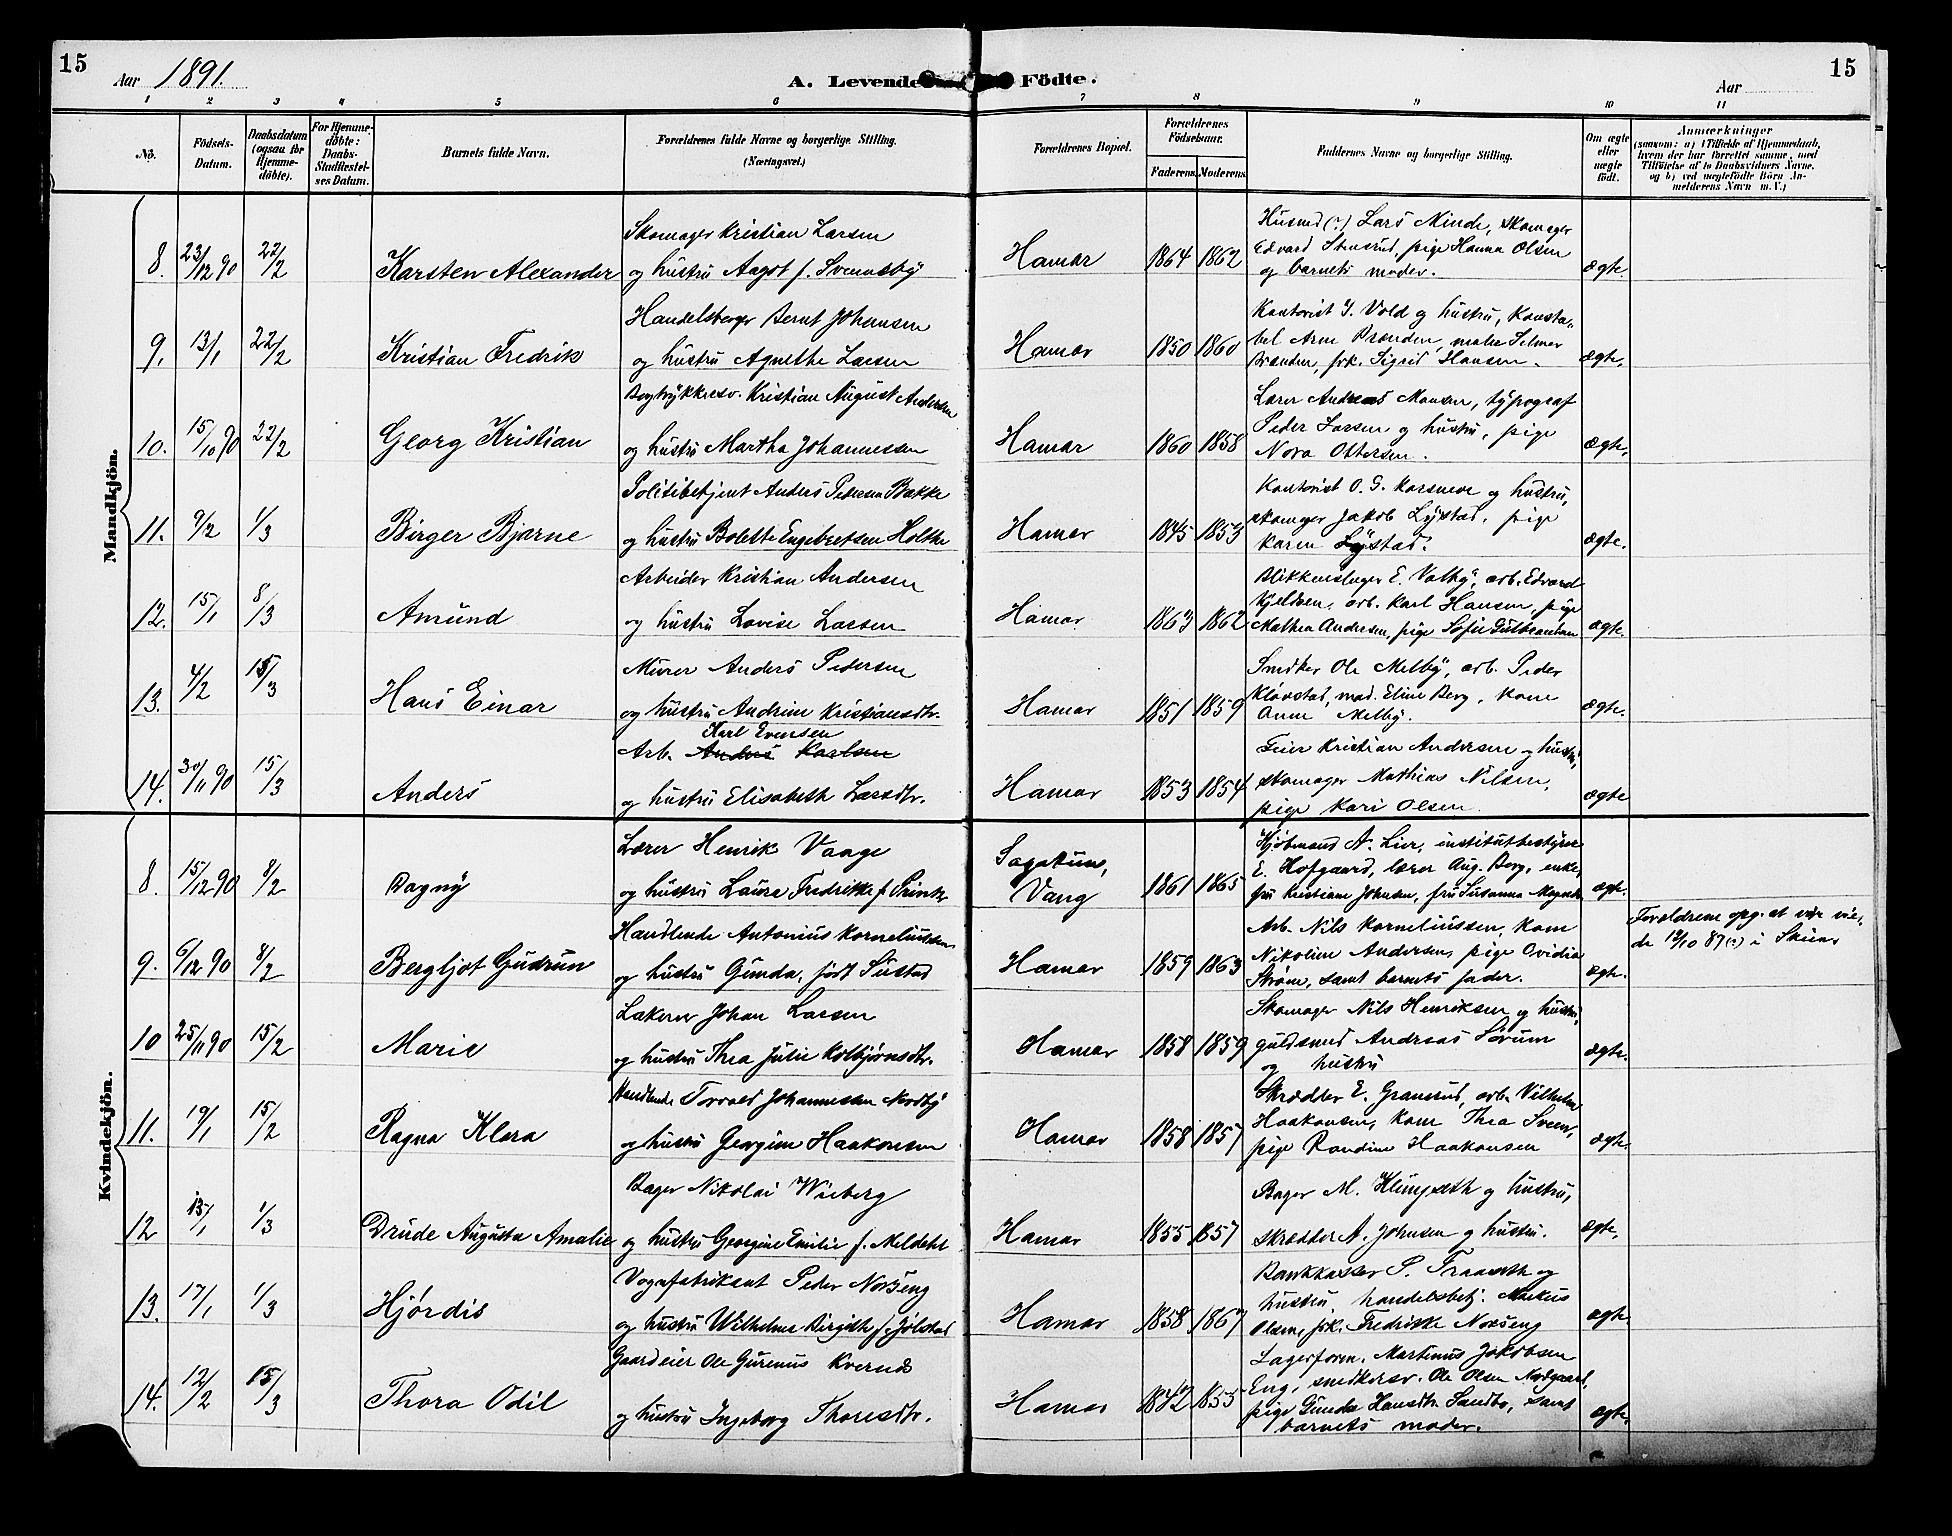 15
Aar 1891.
A. Levende Födte.
Aar
15
1 2 3 4 5 6 7 8 9 10 11
No.
Födsels-Datum.
Daabsdatum (ogsaa för Hjemmedöbte).
For Hjemmedöbte: Daabs-Stadfæstelses Datum.
Barnets fulde Navn.
Forældrenes fulde Navne og borgerlige Stilling. (Næringsvei.)
Forældrenes Bopæl.
Forældrenes Fødselsaar.
Faderens. Moderens.
Faddernes Navne og borgerlige Stilling.
Om ægte eller uægte født.
Anmærkninger
(saasom: a) i Tilfælde af Hjemmedaab,
hvem der har forrettet samme, med
Tilföielse af to Daabsvidners Navne.
og b) ved uægtefödte Börn An-
melderens Navn m. V.)
Mandkjön.
8. 23/12 90 22/2 Karsten Alexander
Skomager Kristian Larsen
og hustru Aagot f. Svennsby
Hamar 1864 1862
Husmd (?) Lars Minde, skomager
Edvard Stensrud, pige Hanna Olsen
og barnets moder.
ægte.
9. 13/1 22/2 Kristian Fredrik
Handelsborger Bernt Johansen
og hustru Agnethe Larsen
Hamar 1850 1860
Kontorist I. Vold og hustru, Konsta-
bel Arne Brænden, maler Selmer
Brænden, frk. Sigrid Hansen.
ægte.
10. 15/10 90 22/2 Georg Kristian
Bogtrykkersv. Kristian August Andersen
og hustru Martha Johannessen
Hamar 1860 1858
Lærer Andreas Monsen, typograf
Peder Larsen og hustru, pige
Nora Ottersen.
ægte.
11. 9/2 1/3 Birger Bjarne
Politibetjent Anders Pedersen Bakke
og hustru Bolette Engebretsen Holthe
Hamar 1845 1853
Kontorist O. G. og hustru,
skomager Jakob Lystad, pige
Karen Lystad.
ægte.
12. 15/1 8/3 Amund
Arbeider Kristian Andersen
og hustru Lovise Larsen
Hamar 1863 1862
Blikkenslager E. Valby, arb. Edvard
Kjeldsen, arb. Karl Hansen, pige
Mathea Andersen, pige Sofie Gulbransen
ægte.
13. 4/2 15/3 Hans Einar
Murer Anders Pedersen
og hustru Andrine Kristiansdtr.
Hamar 1851 1859
Snedker Ole Melby, arb. Peder
Kløvstad, mad. Eline Berg, kone
Anne Melby.
ægte.
14. 30/11 90 15/3 Anders
Karl Evensen
Arb. Anders Karlsen
og hustru Elisabeth Larsdtr.
Hamar 1853 1854
Feier Kristian Andersen og hustru,
skomager Mathias Nilsen,
pige Kari Olsen.
ægte
Kvindekjön.
8. 15/12 90 8/2 Dagny
Lærer Henrik Vaage
og hustru Laura Fredrikke f.
Sagatun,
Vang 1861 1865
Kjøbmand A. Lier, institutbestyrer
E. Hofgaard, lærer Aug. Berg, enke-
fru Kristiane Johnsen, fru Susanna
ægte.
9. 6/12 90 8/2 Bergljot Gudrun
Handlende Antonius Korneliussen
og hustru Gunda, født Sustad
Hamar 1859 1863
Arb. Nils Korneliussen, kone
Nikoline Andersen, pige Ovidia
Strøm, samt barnets fader.
ægte.
Forældrene opg. at være vie-
de 19/10 87 (?) i Skien
10 25/11 90 15/2 Marie
Lakerer Johan Larsen
og hustru Thea Julie Kolbjørnsdtr.
Hamar 1858 1859
Skomager Nils Henriksen og hustru,
guldsmed Andreas Sørum
og hustru
ægte.
11. 19/1 15/2 Ragna Klara
Handlende Torvald Johannessen Nordby
og hustru Georgine Haakonsen
Hamar 1858 1857
Skrædder E. Granerud, arb. Vilhelm
Haakonsen, kone Thea Svens,
pige Randine Haakonsen
ægte.
12 13/1 1/3 Drude Augusta Amalie
Bager Nikolai Wieberg
og hustru Georgine Emilie f. Meldahl
Hamar 1855 1857
Bager M. og hustru,
skrædder A. Johnsen og hustru.
ægte.
13. 17/1 1/3 Hjørdis
Vognfabrikant Peder Norseng
og hustru Wilhelmine Birgithe f. Jølstad
Hamar 1858 1867
Bankkasser P. Traaseth og
hustru, handelsbetj. Markus
Olsen, frk. Fredrikke Norseng
ægte.
14. 12/2 15/3 Thora Odil
Gaardeier Ole Gurenius Kvernes
og hustru Ingeborg Thoresdtr.
Hamar 1842 1855
Lagerform. Martinus Jakobsen
Eng, snedkersv. Ole Olsen Nordgaard,
pige Gunda Hansdtr. Sandbo, samt
barnets moder.
ægte.